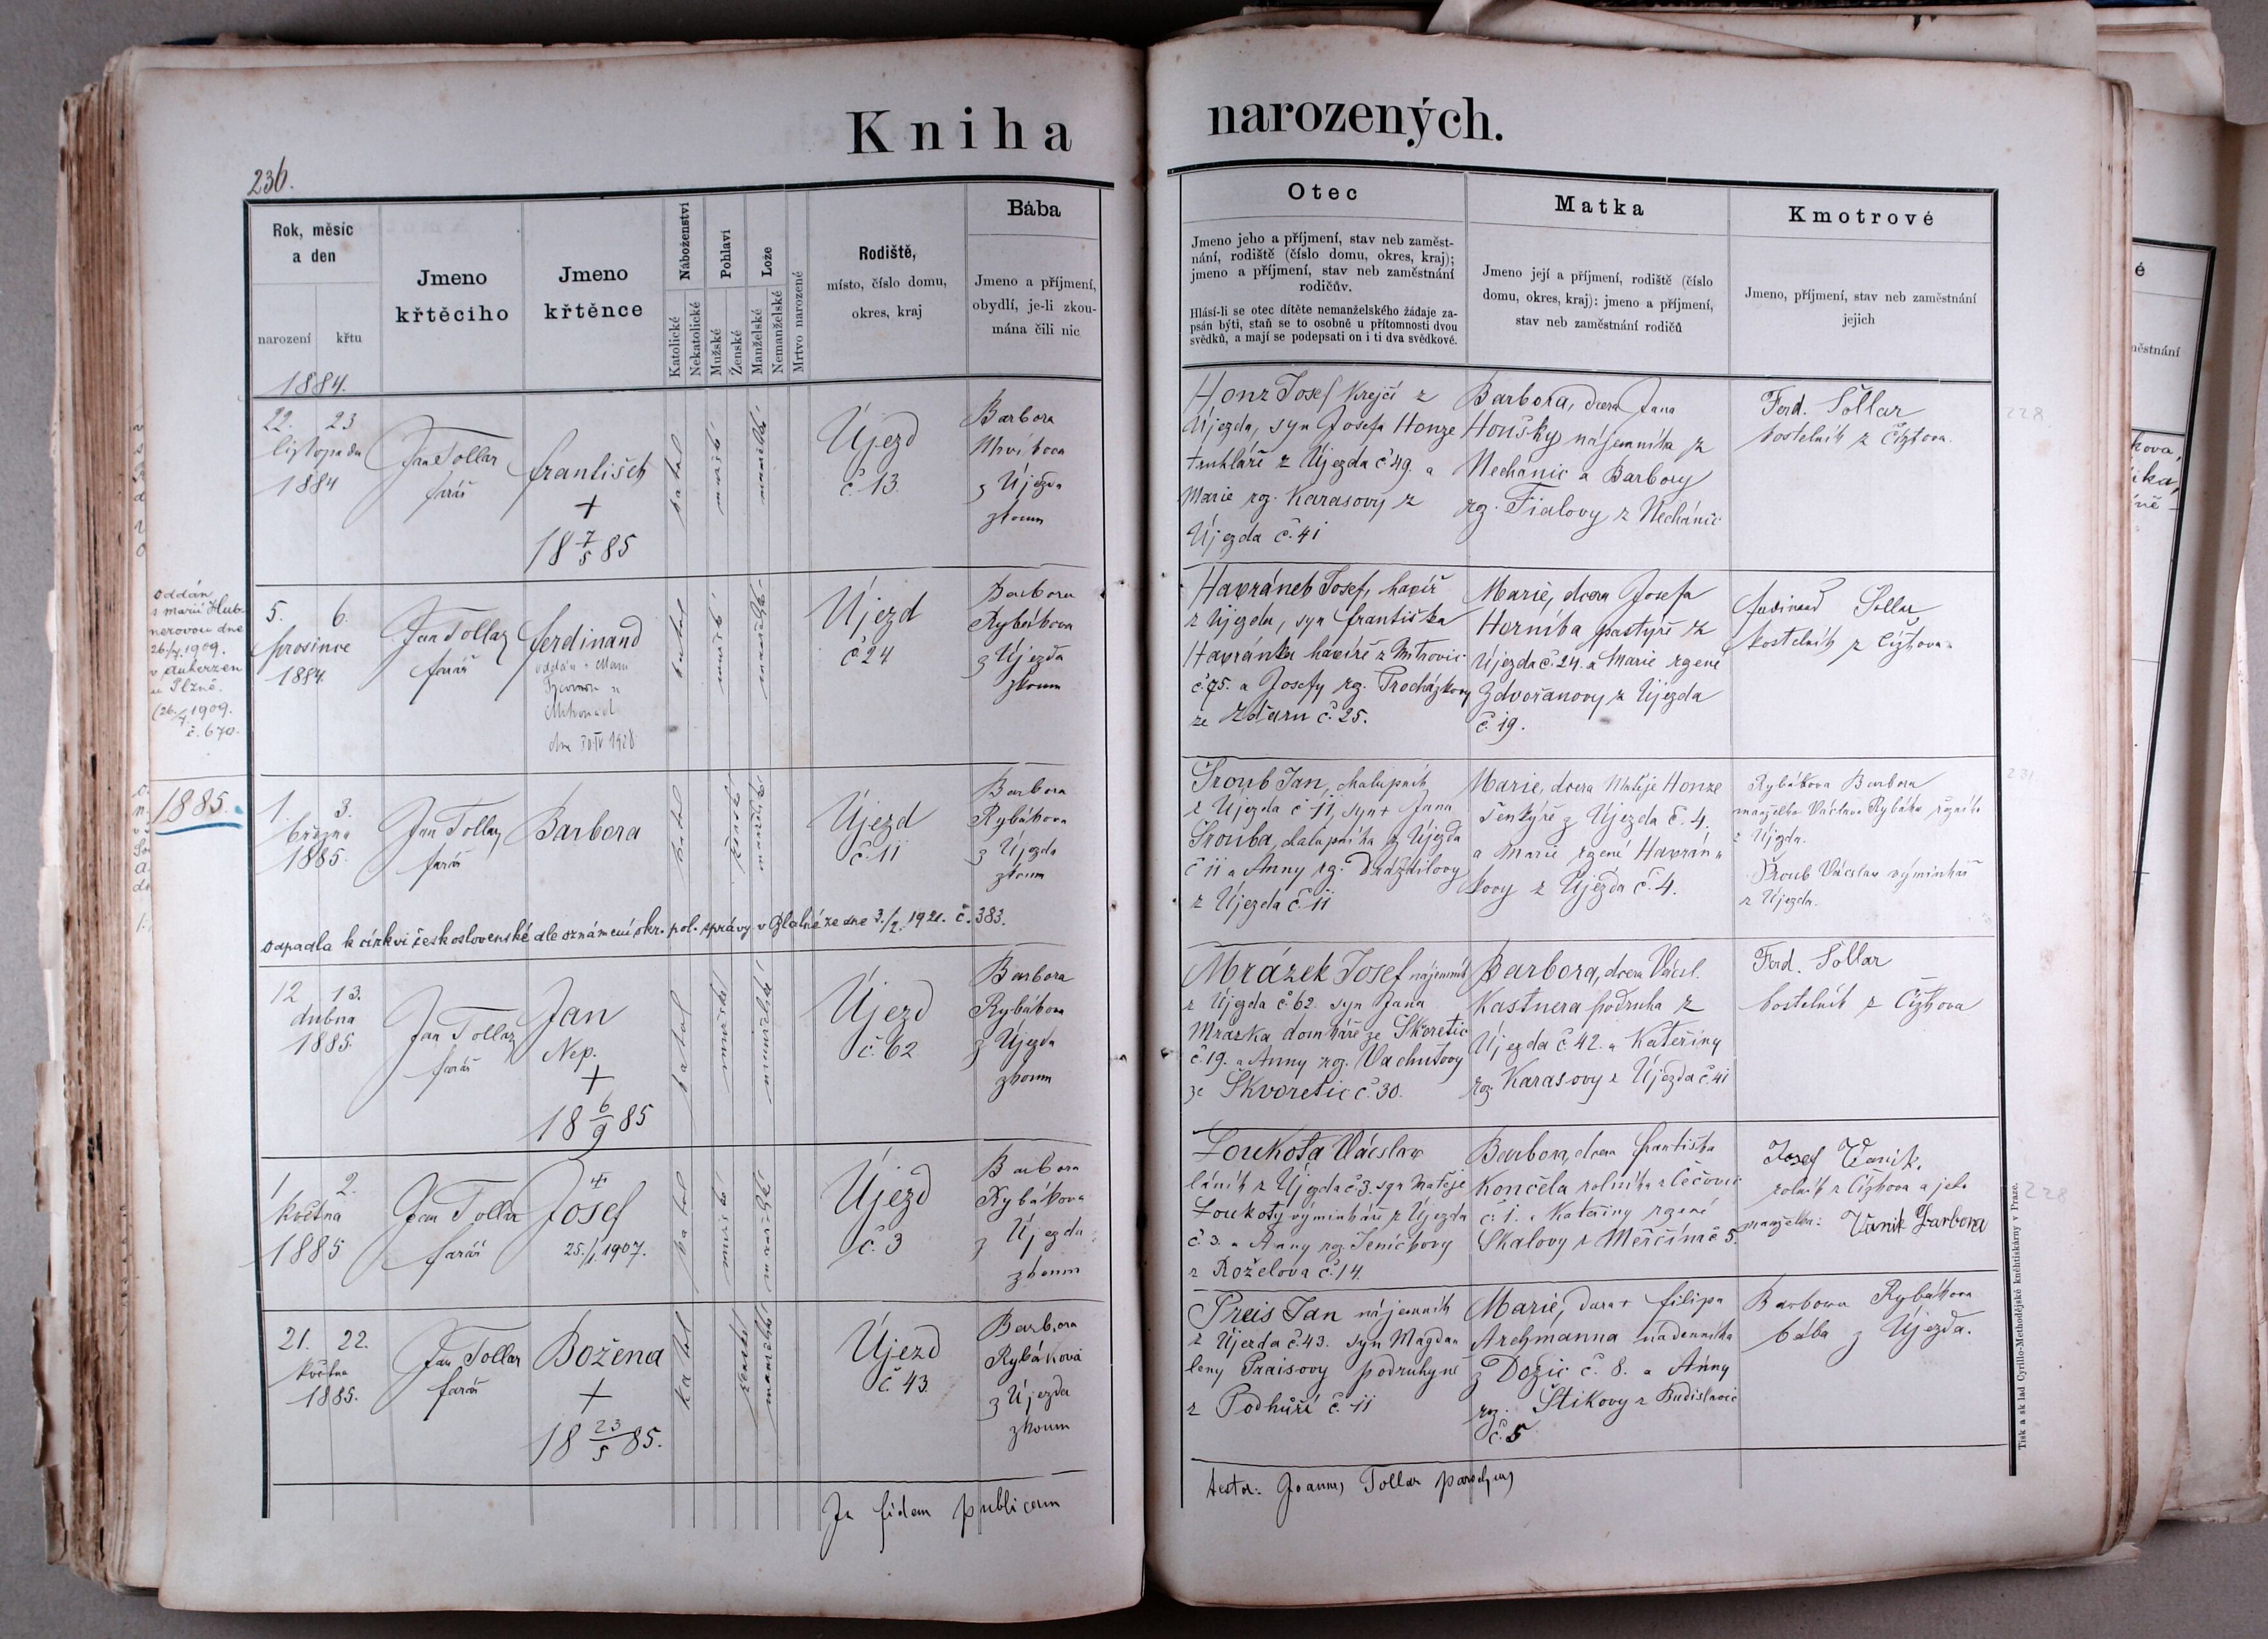 Kniha narozených.
236.
Rok, měsíc
a den
narození
křtu
Jmeno
křtěcího
Jmeno
křtěnce
Náboženství
Katolické
Nekatolické
Pohlaví
Mužské
Ženské
Lože
Manželské
Nemanželské
Mrtvo narozené
Rodiště,
místo, číslo domu,
okres, kraj
Bába
Jmeno a příjmení,
obydlí, je-li zkou-
mána čili nic
Otec
Jmeno jeho a příjmení, stav neb zaměst-
nání, rodiště (číslo domu, okres, kraj);
jmeno a příjmení, stav neb zaměstnání
rodičův.
Hlásí-li se otec dítěte nemanželského žádaje za-
psán býti, staň se to osobně u přítomnosti dvou
svědků, a mají se podepsati on i ti dva svědkové.
Matka
Jmeno její a příjmení, rodiště (číslo
domu, okres, kraj); jmeno a příjmení,
stav neb zaměstnání rodičů
Kmotrové
Jmeno, příjmení, stav neb zaměstnání
jejich
1884.
22. 23
listopadu
1884
Jan Tollar
farář
František
+
18 7/5 85
katol
mužské
manželské
Újezd
č 13.
Barbora
z Újezda
zkoum
Honz Josef krejčí z
Újezda, syn Josefa Honze
truhláře z Újezda č 49. a
Marie rz. Karasovy z
Újezda č. 41
Barbora, dcera Jana
Houšky nájemníka z
Nechanic a Barbory
rz. Fialovy z Nechanic
Ferd. Sollar
kostelník z Čížkova.
228
oddán
s Marií Hub-
nerovou dne
26/4. 1909.
v Auherzen
u Plzně.
(26./4. 1909.
č. 670.
5. 6.
prosince
1884.
Jan Tollar
farář
Ferdinand
oddán s Marií
dne 30/IV 1928
katol
mužské
manželské
Újezd
č 24
Barbora
Rybákova
z Újezda
zkoum
Havránek Josef, havíř
z Újezda, syn Františka
Havránka havíře z Mitrovic
č. 75. a Josefy rz. Procházkovy
ze Žďáru č. 25.
Marie, dcera Josefa
Horníka pastýře z
Újezda č. 24. a Marie rzené
Zdvořanovy z Újezda
č. 19.
Ferdinand Sollar
kostelník z Čížkova.
1885.
1. 3.
března
1885.
Jan Tollar
farář
Barbora
katol
ženské
manželské
Újezd
č. 11
Barbora
Rybákova
z Újezda
zkoum
Šroub Jan, chalupník
z Újezda č 11, syn + Jana
Šrouba, chalupníka z Újezda
č 11 a Anny rz. Drázdilovy
z Újezda č. 11
Marie, dcera Matěje Honze
šenkýře z Újezda č. 4.
a Marie rzené Havrán-
kovy z Újezda č. 4.
Rybákova Barbora
manželka Václava Rybáka
z Újezda.
Šroub Václav výminkář
z Újezda.
231
Odpadla k církvi československé dle oznámení okr. pol. správy v Blatné ze dne 3./2. 1921. č. 383.
12 13.
dubna
1885.
Jan Tollar
farář
Jan
Nep.
+
18 6/9 85
katol
mužské
manželské
Újezd
č. 62
Barbora
Rybákova
z Újezda
zkoum
Mrázek Josef nájemník
z Újezda č 62. syn Jana
Mrázka domkáře ze Škvoretic
č. 19. a Anny rz. Vachutovy
ze Škvoretic č. 30.
Barbora, dcera Václ.
Kastnera podruha z
Újezda č. 42. a Kateřiny
rz. Karasovy z Újezda č. 41
Ferd. Sollar
kostelník z Čížkova
1 2.
května
1885
Jan Tollar
farář
Josef
25./1. 1907.
katol
mužské
manželské
Újezd
č. 3
Barbora
Rybákova
z Újezda
zkoum
Loukota Václav
láník z Újezda č. 3. syn Matěje
Loukoty výminkáře z Újezda
č. 3. a Anny rz. Jeníchovy
z Roželova č. 14.
Barbora, dcera Františka
Končela rolníka z Čečovic
č. 1. a Kateřiny rzené
Skalovy z Měrčína č 5.
Josef Vaník,
rolník z Čížkova a jeho
manželka: Vaník Barbora
228
21. 22.
května
1885.
Jan Tollar
farář
Božena
+
18 23/5 85.
katol
ženské
manželské
Újezd
č. 43
Barbora
Rybáková
z Újezda
zkoum
Preis Jan nájemník
z Újezda č. 43. syn Magda-
leny Praisovy podruhyně
z Podhůří č. 11
Marie, dcera + Filipa
Archmanna nádenníka
z Dožic č. 8. a Anny
rz. Štikovy z Budislavic
č. 5
Barbora Rybákova
bába z Újezda.
In fidem publicam
testor. Joannes Tollar parochus
Tisk a sklad Cyrillo-Methodějské knihtiskárny v Praze.